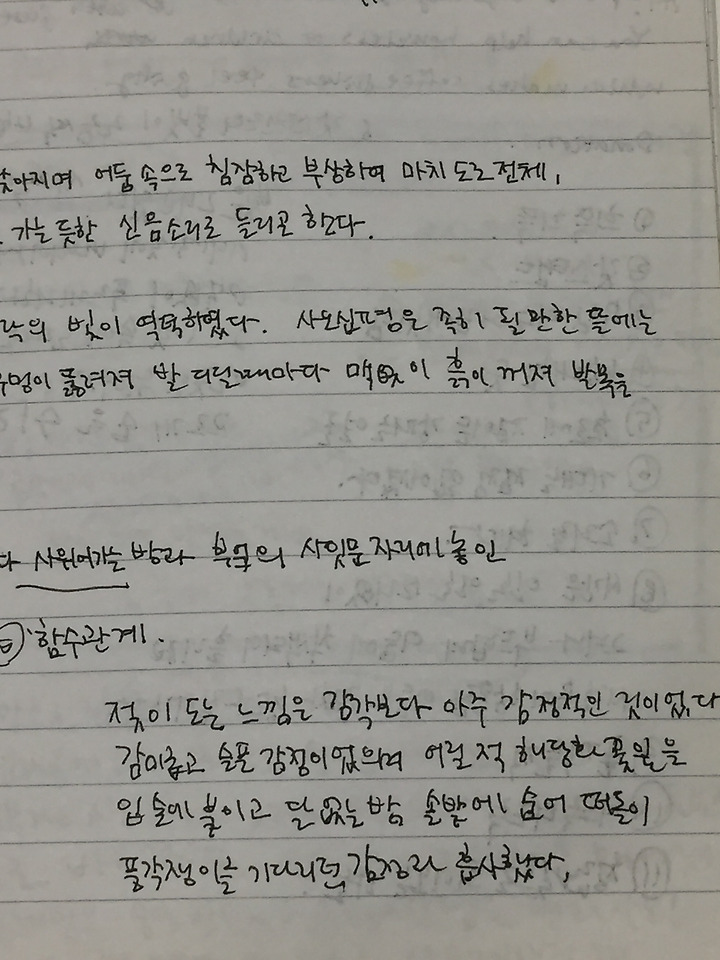 낮아지며 어둠 속으로 침잠하고 부상하며 마치 도로 전체,
가는 듯한 신음소리로 들리곤 했다.
락의 빛이 역력하였다. 사오십평은 족히 될 만한 뜰에는
구멍이 뚫려져 발 디딜 때마다 맥없이 흙이 꺼져 발목을
다 사위어가는 방과 부엌의 사잇문 자리에 놓인
함수관계.
젖이 도는 느낌은 감각보다 아주 감정적인 것이었다
감미롭고 슬픈 감정이었으며 어릴 적 해당화 꽃잎을
입술에 붙이고 달 없는 밤 솔밭에 숨어 떠돌이
풍각쟁이를 기다리던 감정과 흡사했다,